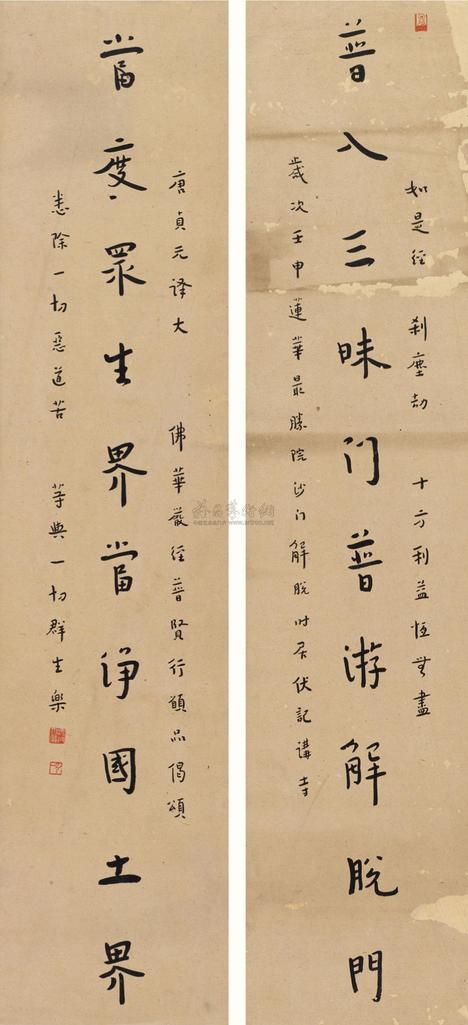 如是經 刹塵劫 十方利益恆無盡
普入三昧门普游解脫門
歲次壬申蓮華最勝院沙门解脫时居伏記講寺
唐貞元译大 佛華嚴經普賢行願品偈頌
當度眾生界當净國土界
悉除一切惡道苦 等與一切群生樂